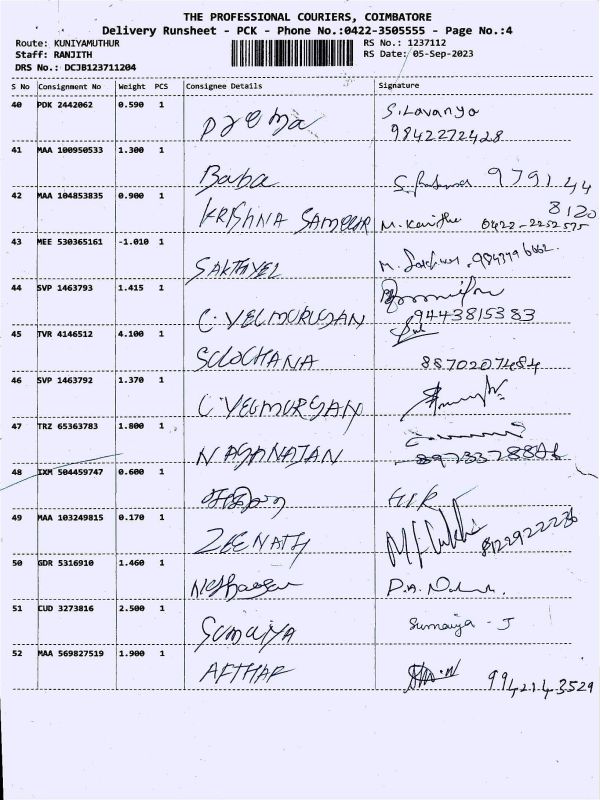 THE PROFESSIONAL COURIERS, COIMBATORE
Delivery Runsheet - PCK - Phone No.:0422-3505555 - Page No.:4
Route: KUNIYAMUTHUR RS No.: 1237112
Staff: RANJITH RS Date: 05-Sep-2023
DRS No.: DCJB123711204
S No Consignment No Weight PCS Consignee Details Signature
40 PDK 2442062 0.590 1 S.Lavanya
Prema 9842272428
41 MAA 100950533 1.300 1
Baba 9791 44
42 MAA 104853835 0.900 1 8120
KRISHNA SAMEEUR M. Kavitha 0422-2252575
43 MEE 530365161 -1.010 1
SAKTHIVEL
44 SVP 1463793 1.415 1
C. VELMURUGAN 9443815383
45 TVR 4146512 4.100 1
SULOCHANA 8870207484
46 SVP 1463792 1.370 1
C VELMURGAN
47 TRZ 65363783 1.800 1
NAGANATAN
48 IXM 504459747 0.600 1
49 MAA 103249815 0.170 1
ZEENATH 8122922236
50 GDR 5316910 1.460 1
51 CUD 3273816 2.500 1 Sumaiya - J
SUMAIYA
52 MAA 569827519 1.900 1
AFTHAR 9942143529